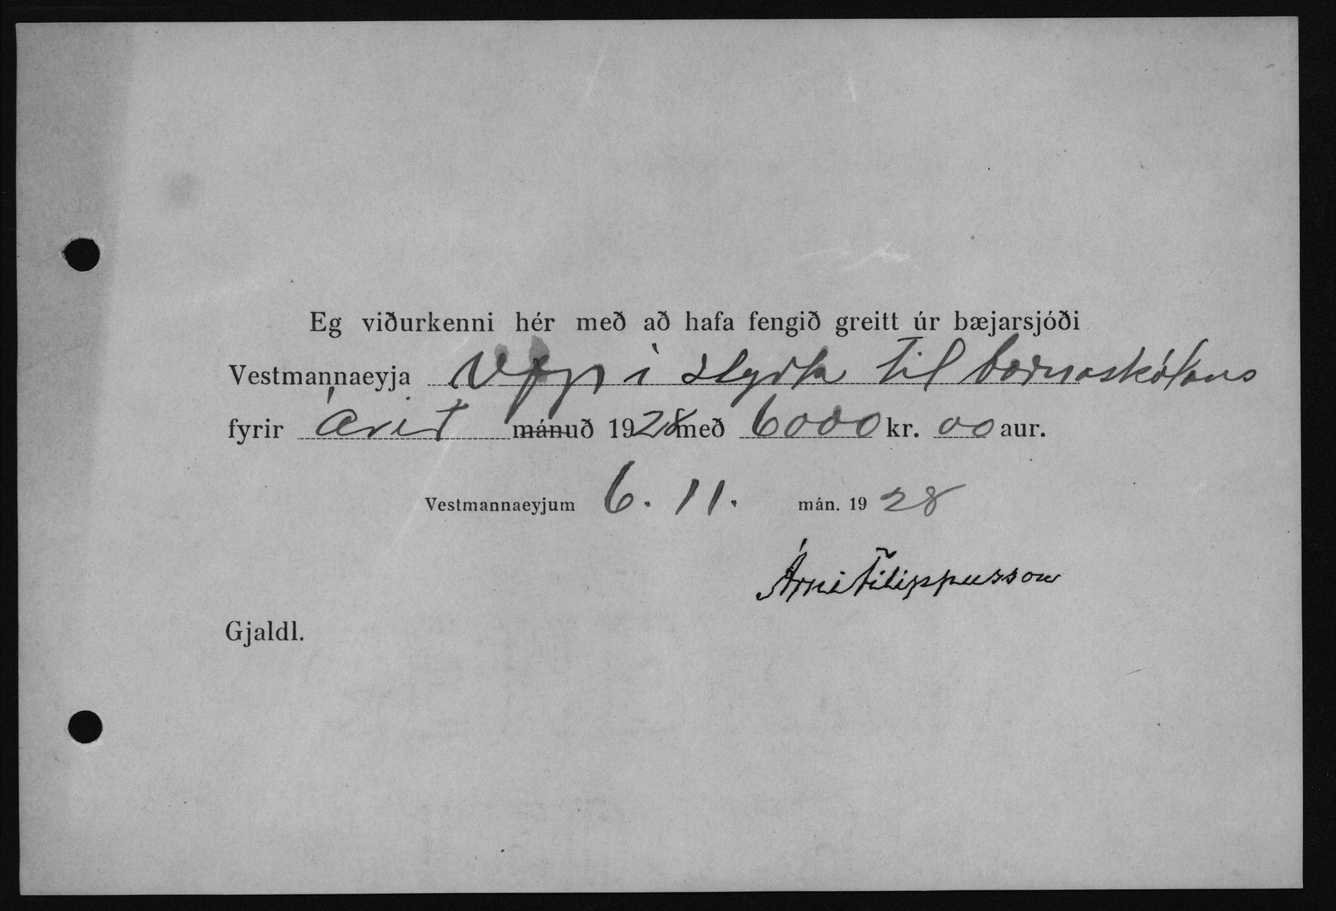 Eg viðurkenni hér með að hafa fengið greitt úr bæjarsjóði
Vestmannaeyja Upp í styrk til barnaskólans
fyrir árið mánuð 1928 með 6000 kr. 00 aur.
Vestmannaeyjum 6. 11. mán. 1928
Árni Filippusson
Gjaldl.